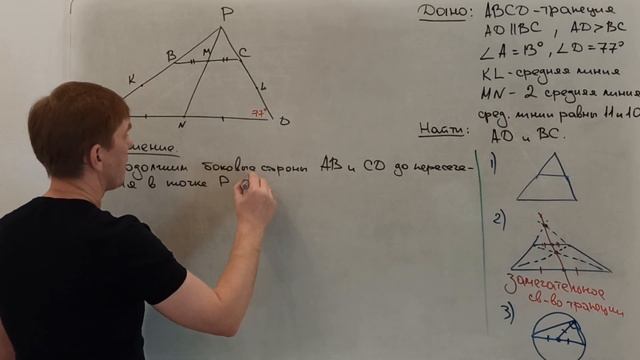 P
B
M
C
K
L
77°
N
D
Дано: ABCD - трапеция
AD || BC , AD > BC
∠A = 13° , ∠D = 77°
KL - средняя линия
MN - 2 средняя линия
сред. линии равны 11 и 10
Найти: AD и BC.
шение.
одолжим боковые стороны AB и CD до пересече-
я в точке P
1)
2)
Замечательное
св-во трапеции
3)